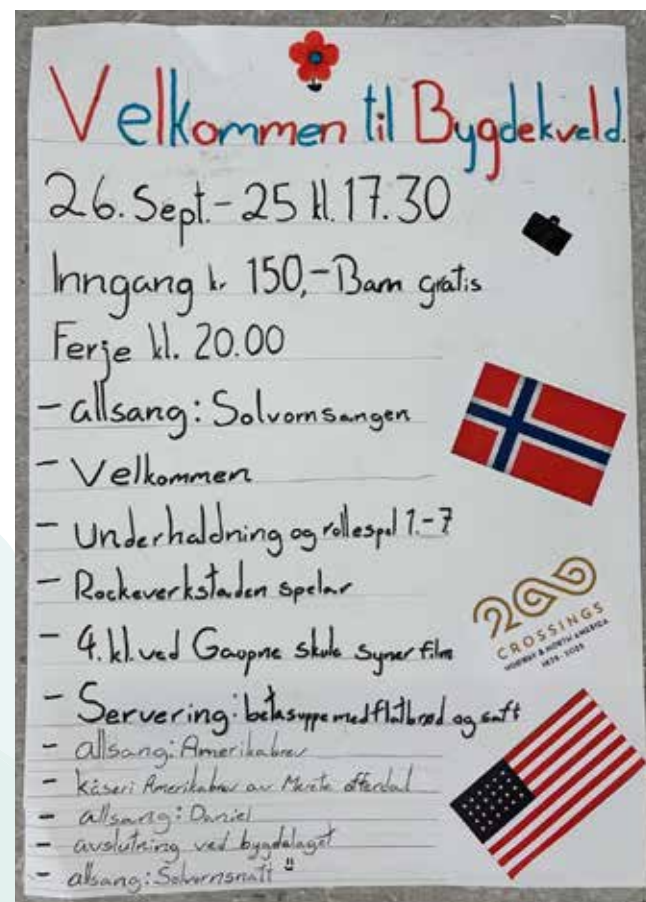 Velkommen til Bygdekveld.
26. Sept.-25 kl. 17.30
Inngang kr 150,- Barn gratis
Ferje kl. 20.00
- allsang: Solvornsangen
- Velkommen
- Underhaldning og rollespel 1.-7
- Rockeverkstaden spelar
- 4. kl. ved Gaupne skule syner film
- Servering: betasuppe med flatbrød og saft
- allsang: Amerikabrev
- kåseri Amerikabrev av Merete Offerdal
- allsang: Daniel
- avslutning ved bygdalaget
- allsang: Solvornsnatt
200
CROSSINGS
NORWAY & NORTH AMERICA
1825 - 2025